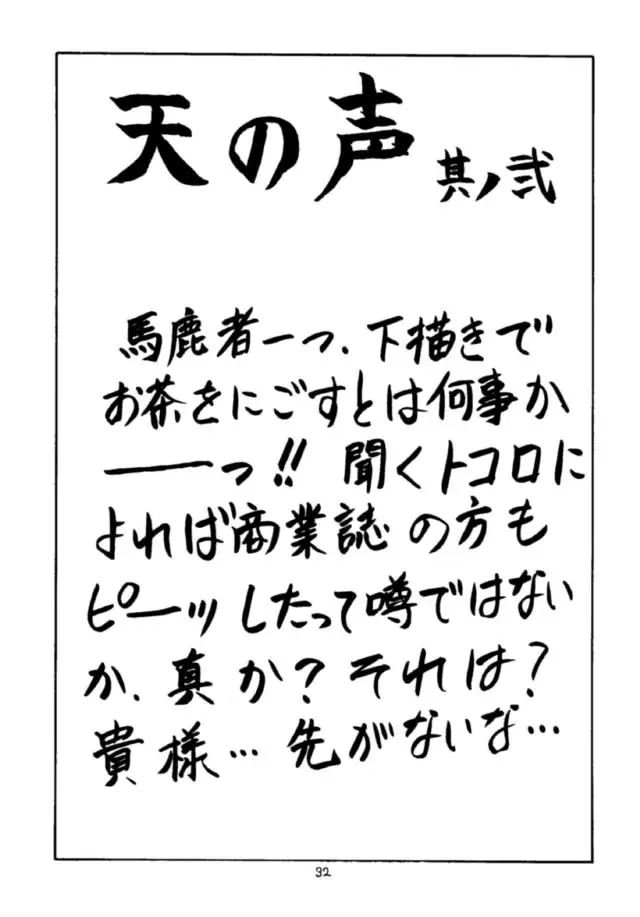 天の声 其ノ弐
馬鹿者ーっ、下描きで
お茶をにごすとは何事か
───っ!! 聞くトコロに
よれば商業誌の方も
ピーッしたって噂ではない
か、真か?それは?
貴様…先がないな…
32